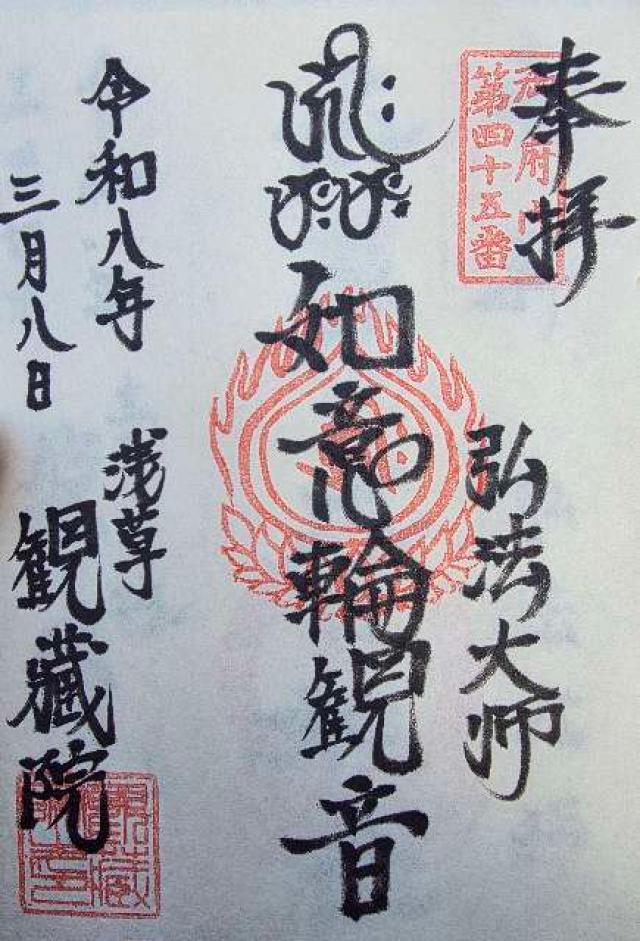 奉拝
元府内
第四十五番
弘法大师
如意輪観音
令和八年
三月八日
浅草
観蔵院